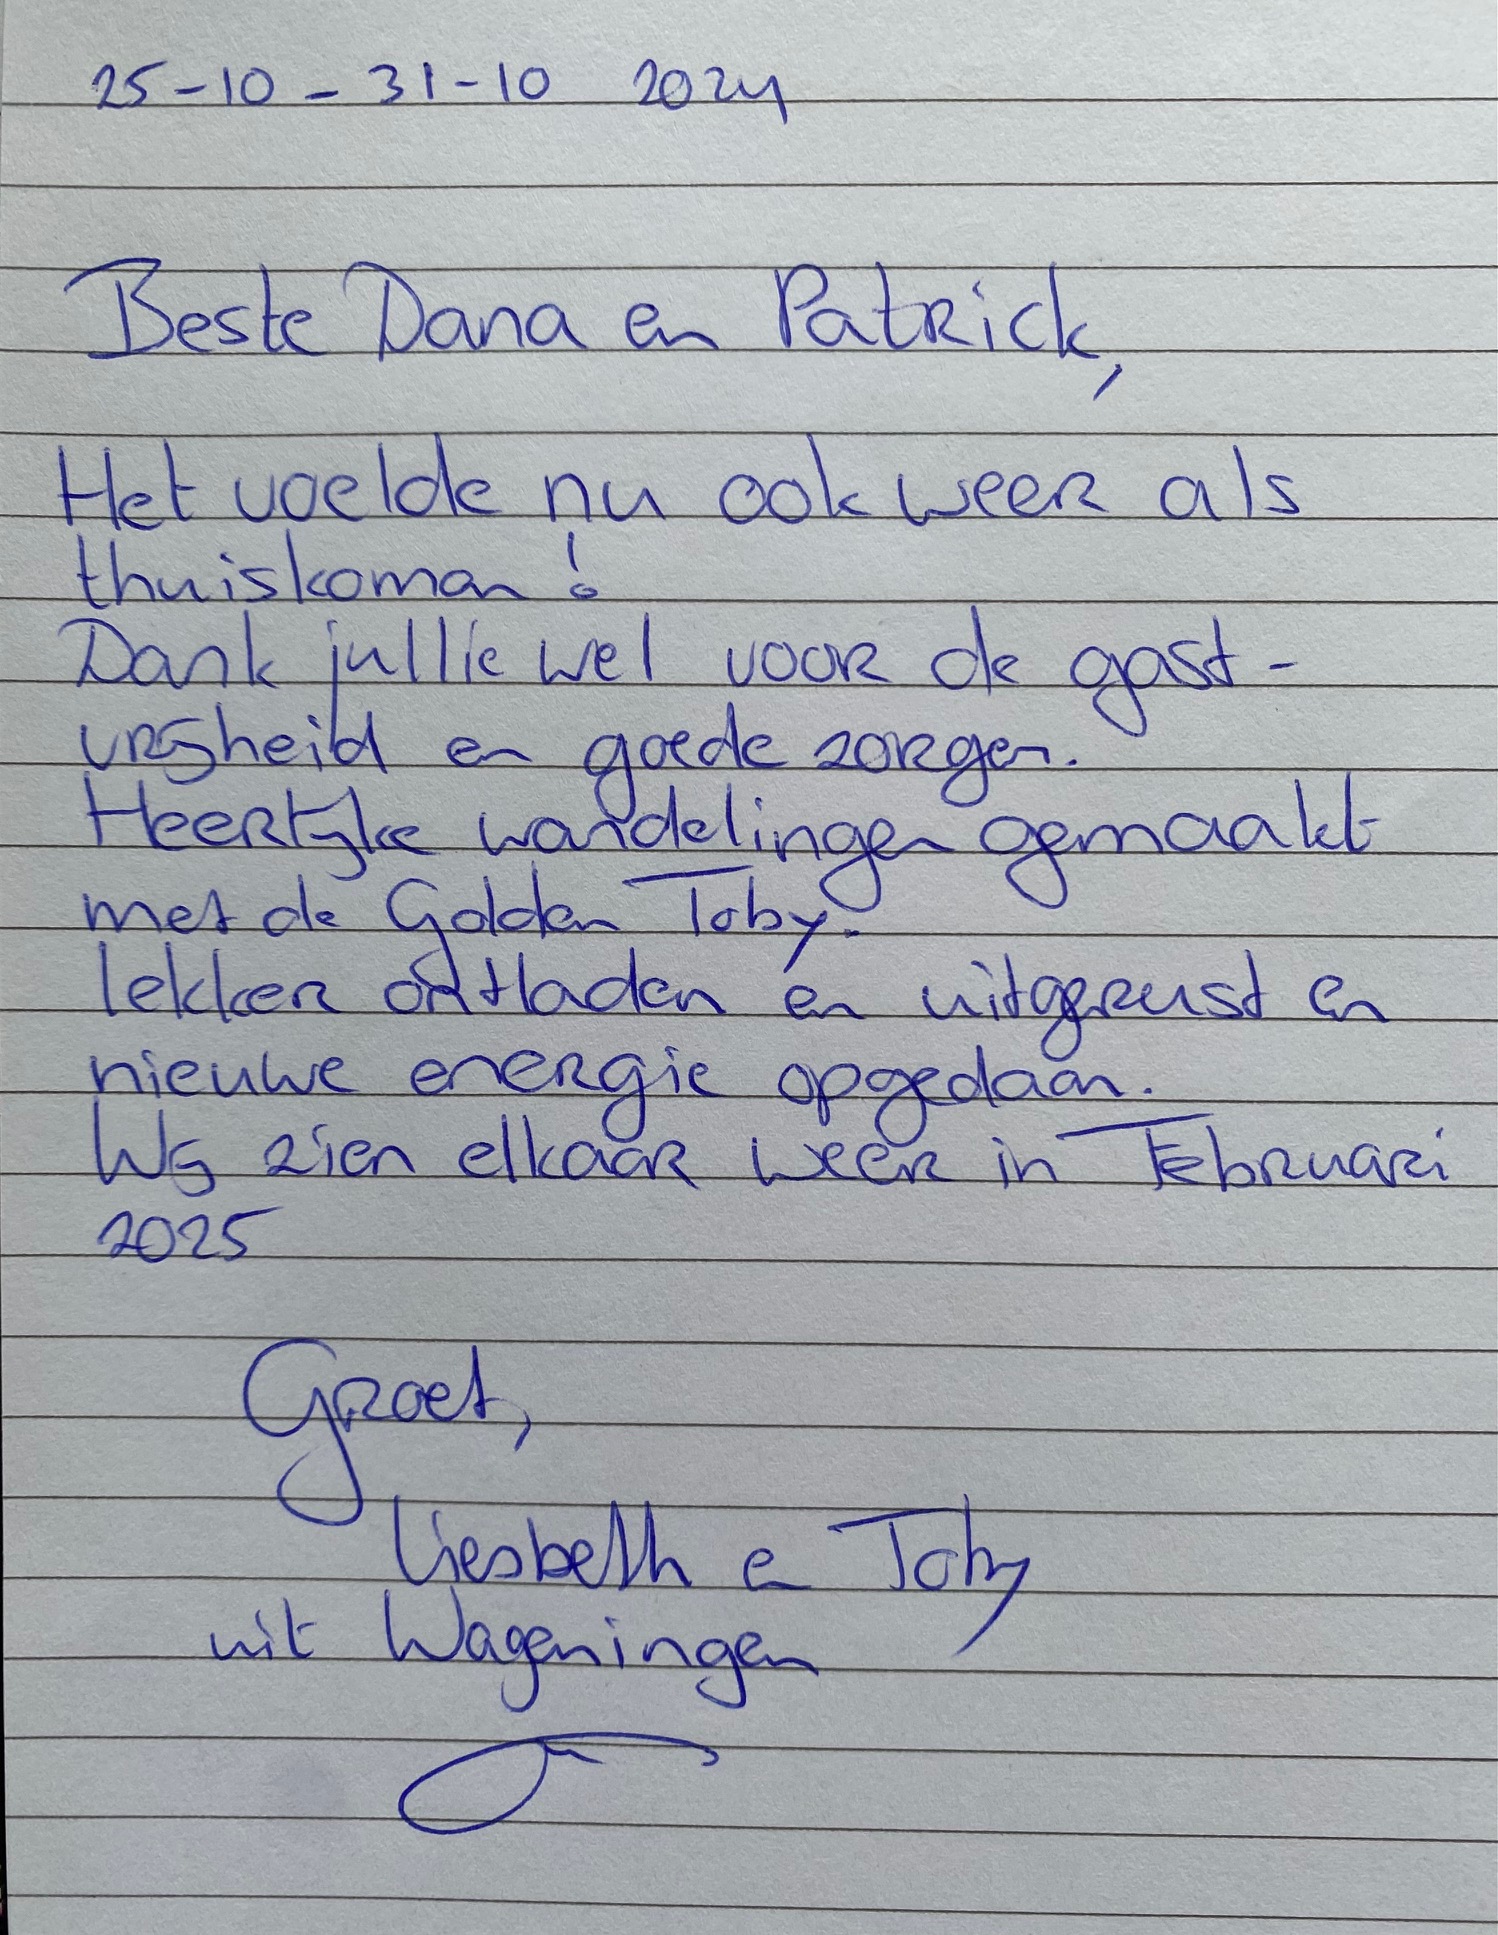 25-10 - 31-10 2024
Beste Dana en Patrick,
Het voelde nu ook weer als
thuiskomen!
Dank jullie wel voor de gast-
vrijheid en goede zorgen.
Heerlijke wandelingen gemaakt
met de Golden Toby.
lekker ontladen en uitgerust en
nieuwe energie opgedaan.
Wij zien elkaar weer in Februari
2025
Groet,
Liesbeth en Toby
uit Wageningen